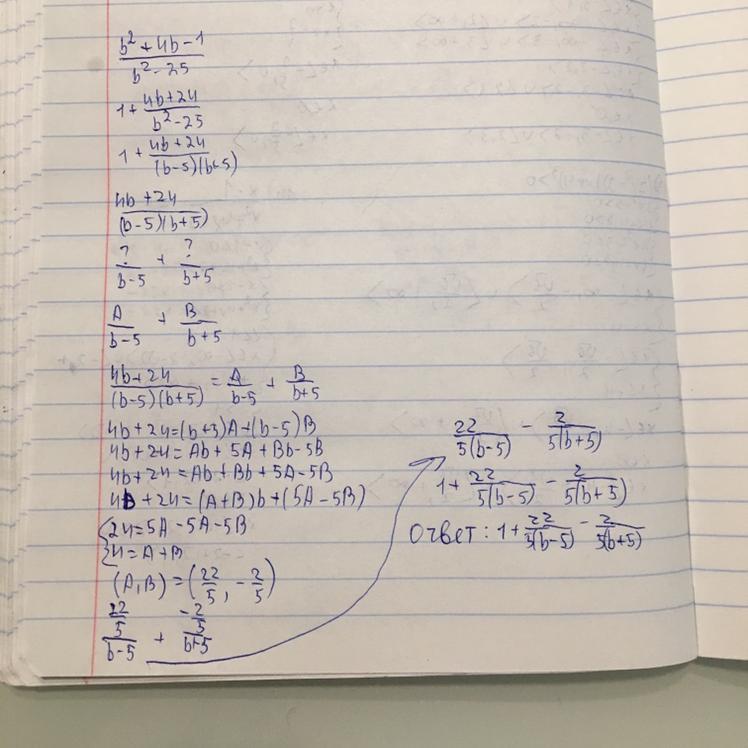 b² + 4b - 1 / b² - 25
1 + 4b + 24 / b² - 25
1 + 4b + 24 / (b - 5)(b + 5)
4b + 24 / (b - 5)(b + 5)
? / b - 5 + ? / b + 5
A / b - 5 + B / b + 5
4b + 24 / (b - 5)(b + 5) = A / b - 5 + B / b + 5
4b + 24 = (b + 5)A + (b - 5)B
4b + 24 = Ab + 5A + Bb - 5B
4b + 24 = Ab + Bb + 5A - 5B
4b + 24 = (A + B)b + (5A - 5B)
{ 24 = 5A - 5A - 5B
4 = A + B
(A, B) = (22/5, - 2/5)
22/5 / b - 5 + -2/5 / b + 5
22 / 5(b - 5) - 2 / 5(b + 5)
1 + 22 / 5(b - 5) - 2 / 5(b + 5)
Ответ: 1 + 22 / 5(b - 5) - 2 / 5(b + 5)